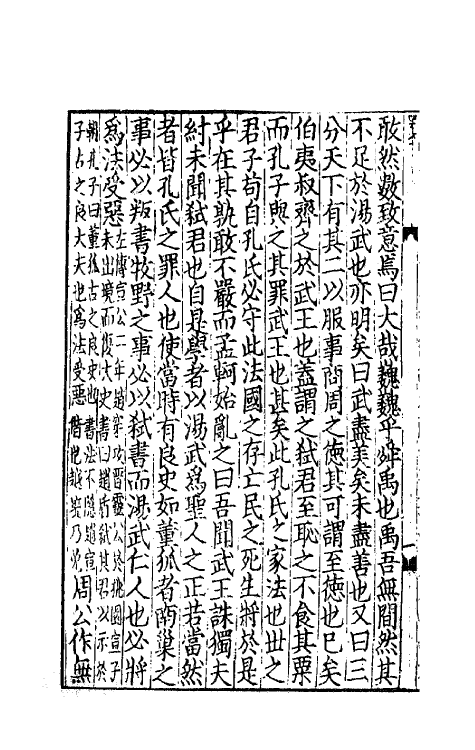 敢然數致意焉曰大哉巍巍乎舜禹也禹吾無間然其
不足於湯武也亦明矣曰武盡美矣未盡善也又曰三
分天下有其二以服事商周之德其可謂至德也已矣
伯夷叔齊之於武王也蓋謂之弒君至恥之不食其粟
而孔子與之其罪武王也甚矣此孔氏之家法也世之
君子苟自孔氏必守此法國之存亡民之死生將於是
乎在其孰敢不嚴而孟軻始亂之曰吾聞武王誅獨夫
紂未聞弒君也自是學者以湯武為聖人之正若當然
者皆孔氏之罪人也使當時有良史如董狐者南巢之
事必以叛書牧野之事必以弒書而湯武仁人也必將
為法受惡左傳宣公二年趙穿攻晉靈公於桃園宣子
未出境而復大史書曰趙盾弒其君以示於
朝孔子曰董狐古之良史也書法不隱趙宣
子古之良大夫也為法受惡惜也越境乃免周公作無